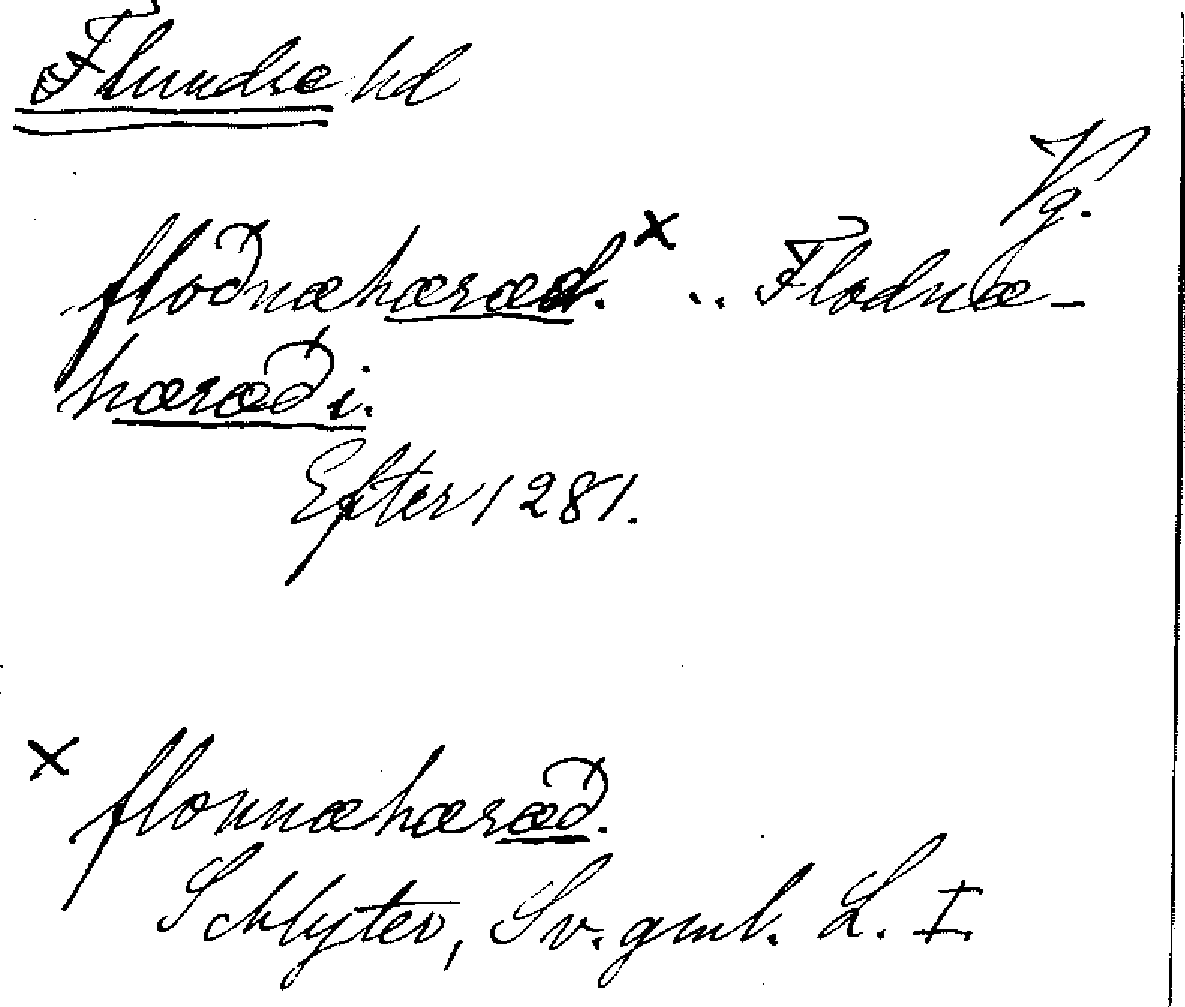 Flundre hd
Vg.
floðnæhæræd.× .. Flodnæ-
hæræði.
Efter 1281.
× flonnæhæræð.
Schlyter, Sv. gml. L. I.